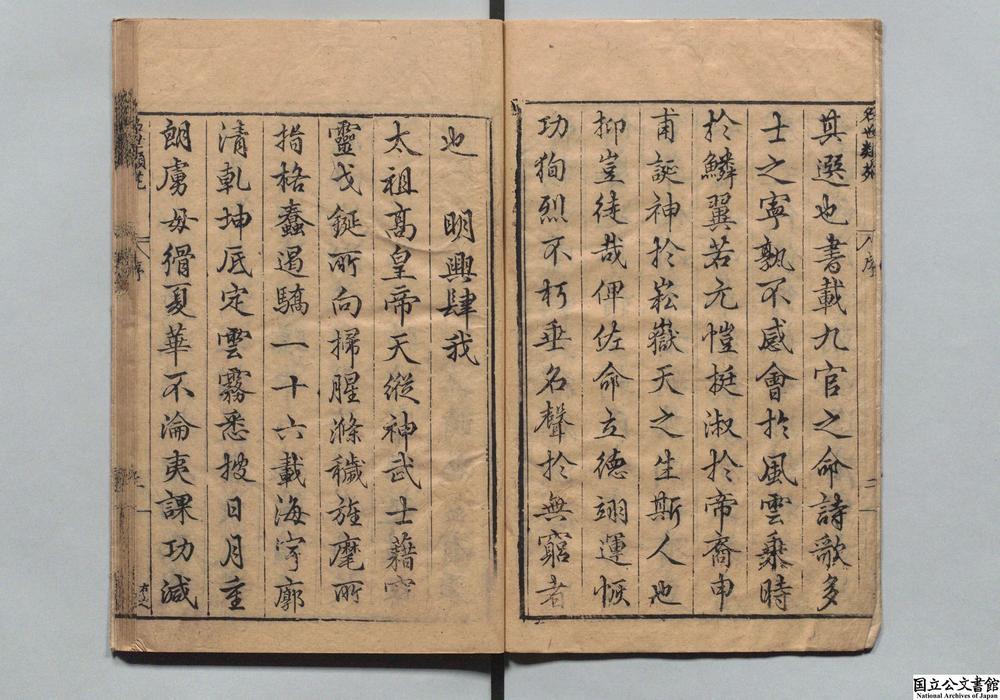 名世類苑 序 二
其選也書載九官之命詩歌多
士之寧孰不感會於風雲乘時
於鱗翼若元愷挺淑於帝裔申
甫誕神於崧嶽天之生斯人也
抑豈徒哉俾佐命立德翊運恢
功狥烈不朽垂名聲於無窮者
也 明興肆我
太祖高皇帝天縱神武士藉
靈戈鋋所向掃腥滌穢旌麾所
指格蠢遏驕一十六載海宇廓
清乾坤底定雲霧悉披日月重
朗虜毋猾夏華不淪夷課功減
序
国立公文書館
National Archives of Japan